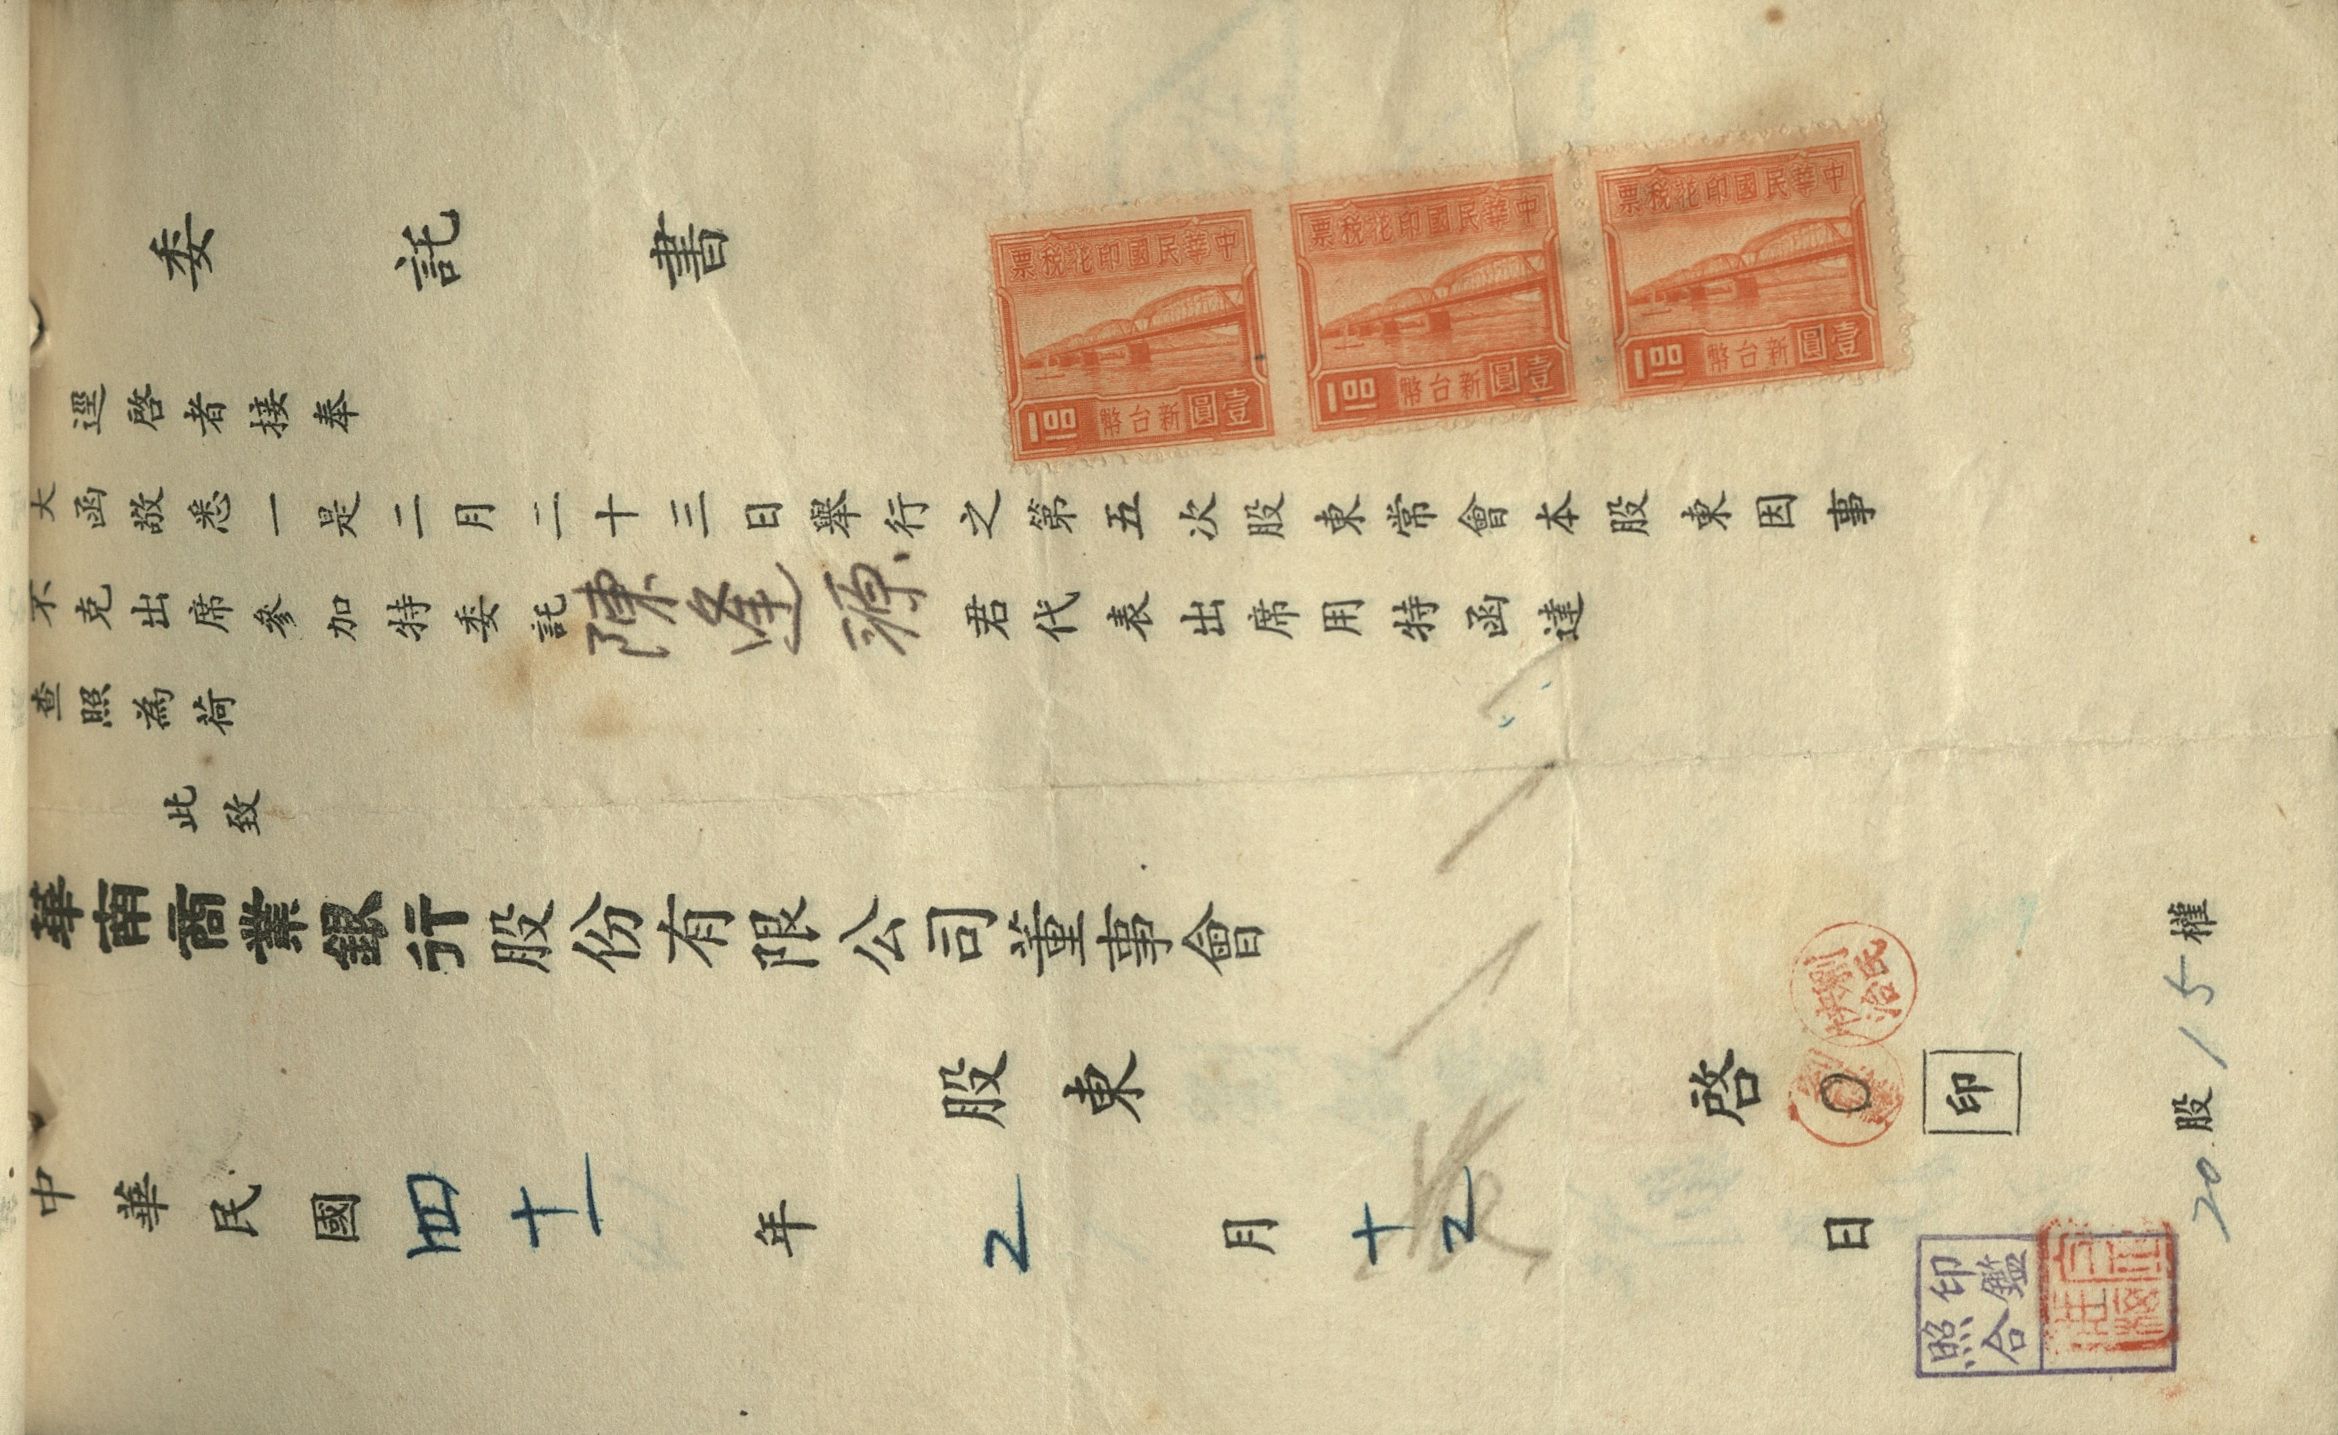 委託書
逕啓者接奉
大函敬悉一是二月二十三日舉行之第五次股東常會本股東因事
不克出席參加特委託陳逢源君代表出席用特函達
查照為荷
此致
華南商業銀行股份有限公司董事會
股東
啓
印
中華民國四十一年2月十2日
20股15權
印鑑
照合
中華民國印花稅票
壹圓新台幣100
中華民國印花稅票
壹圓新台幣100
中華民國印花稅票
壹圓新台幣100